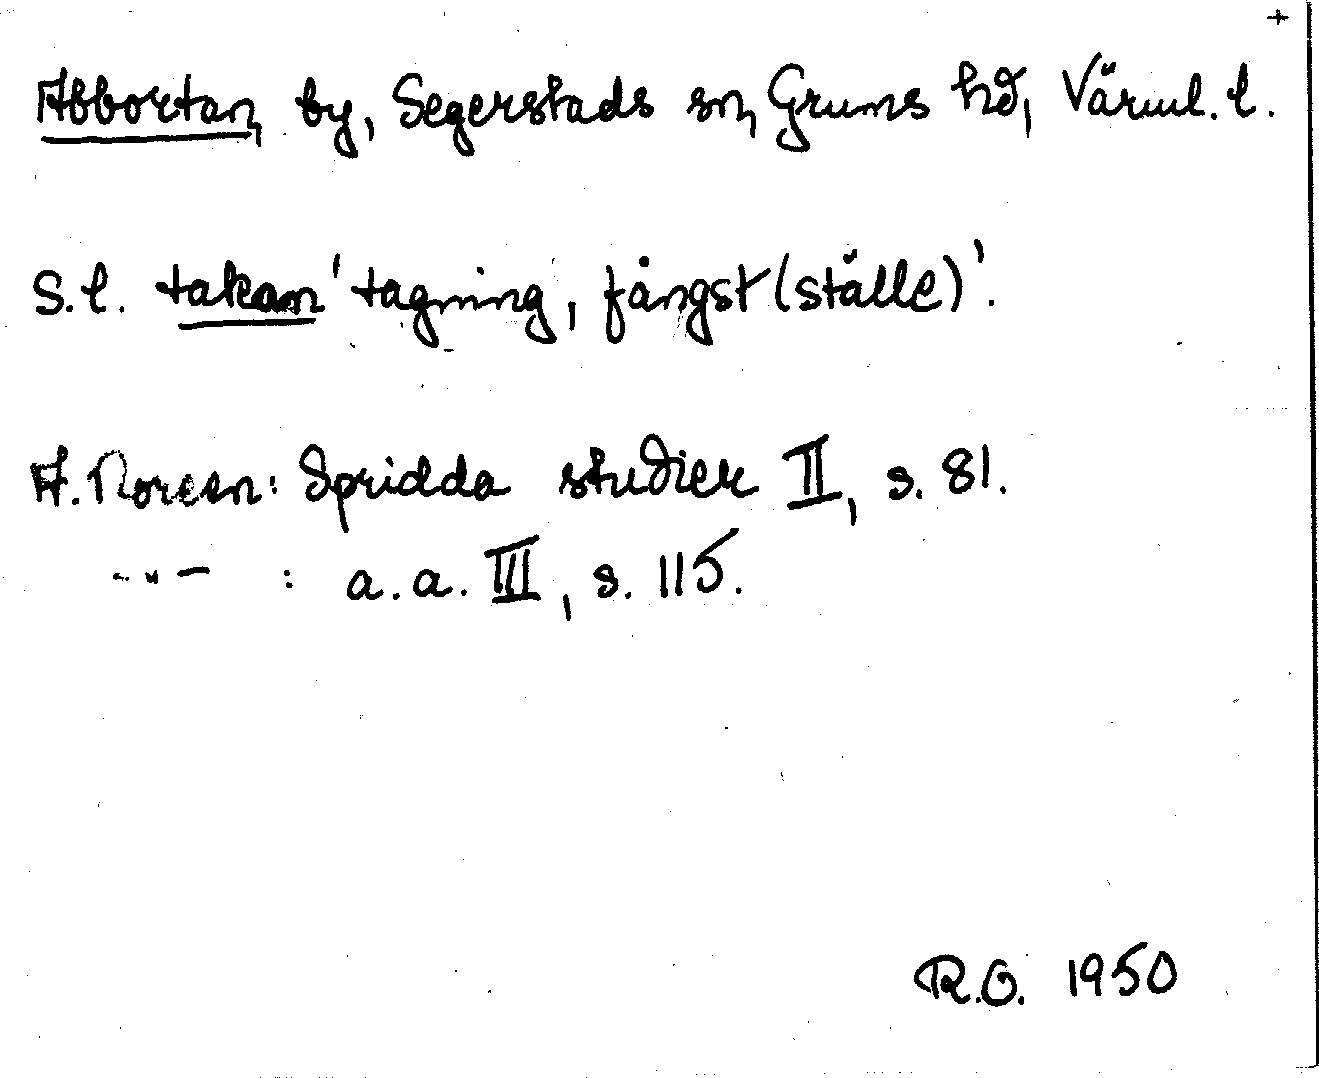 +
Abbortan, by, Segerstads sn, Grums hd, Värml. l.
S.l. takan 'tagning, fångst(ställe)'.
A. Noreen: Spridda studier II, s. 81.
-"- : a.a. III, s. 115.
R.O. 1950